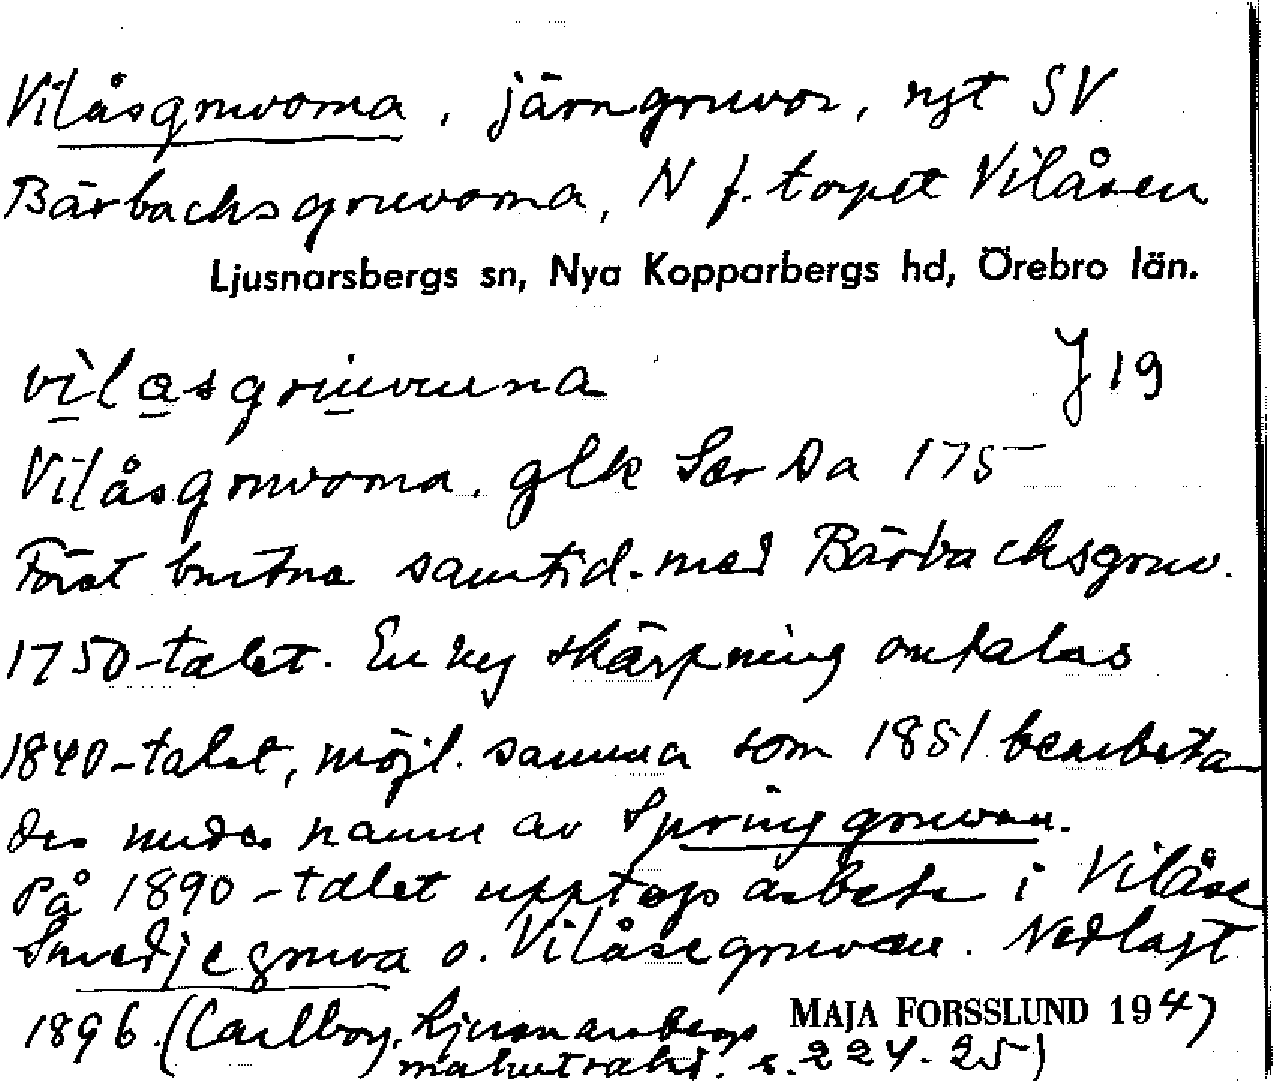 Vilåsgruvorna, järngruvor, ngt SV
Bärbacksgruvorna, N f. torpet Vilåsen
Ljusnarsbergs sn, Nya Kopparbergs hd, Örebro län.
J 19
Vilåsgruvorna. glk Sær Da 175
Först brutna samtid. med Bärbacksgruv.
1750-talet. En ny skärpning omtalas
1840-talet, möjl. samma som 1851 bearbeta-
des under namn av Springgruvan.
På 1890-talet upptogs arbete i Vilåse
Smedjegruva o. Vilåsegruvan. Nedlagt
1896. (Carlborg, Ljusnarsbergs
MAJA FORSSLUND 1947
malmtrakt. s. 224-25)